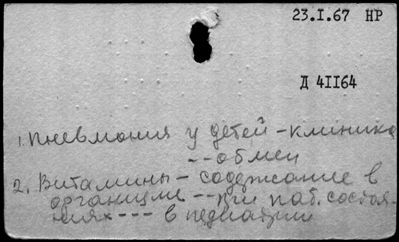 23.I.67 НР
Д 41164
1. Пневмония у детей - клиника
-- обмен
2. Витамины - содержание в
организме -- при пат. состоя-
ниях --- в педиатрии